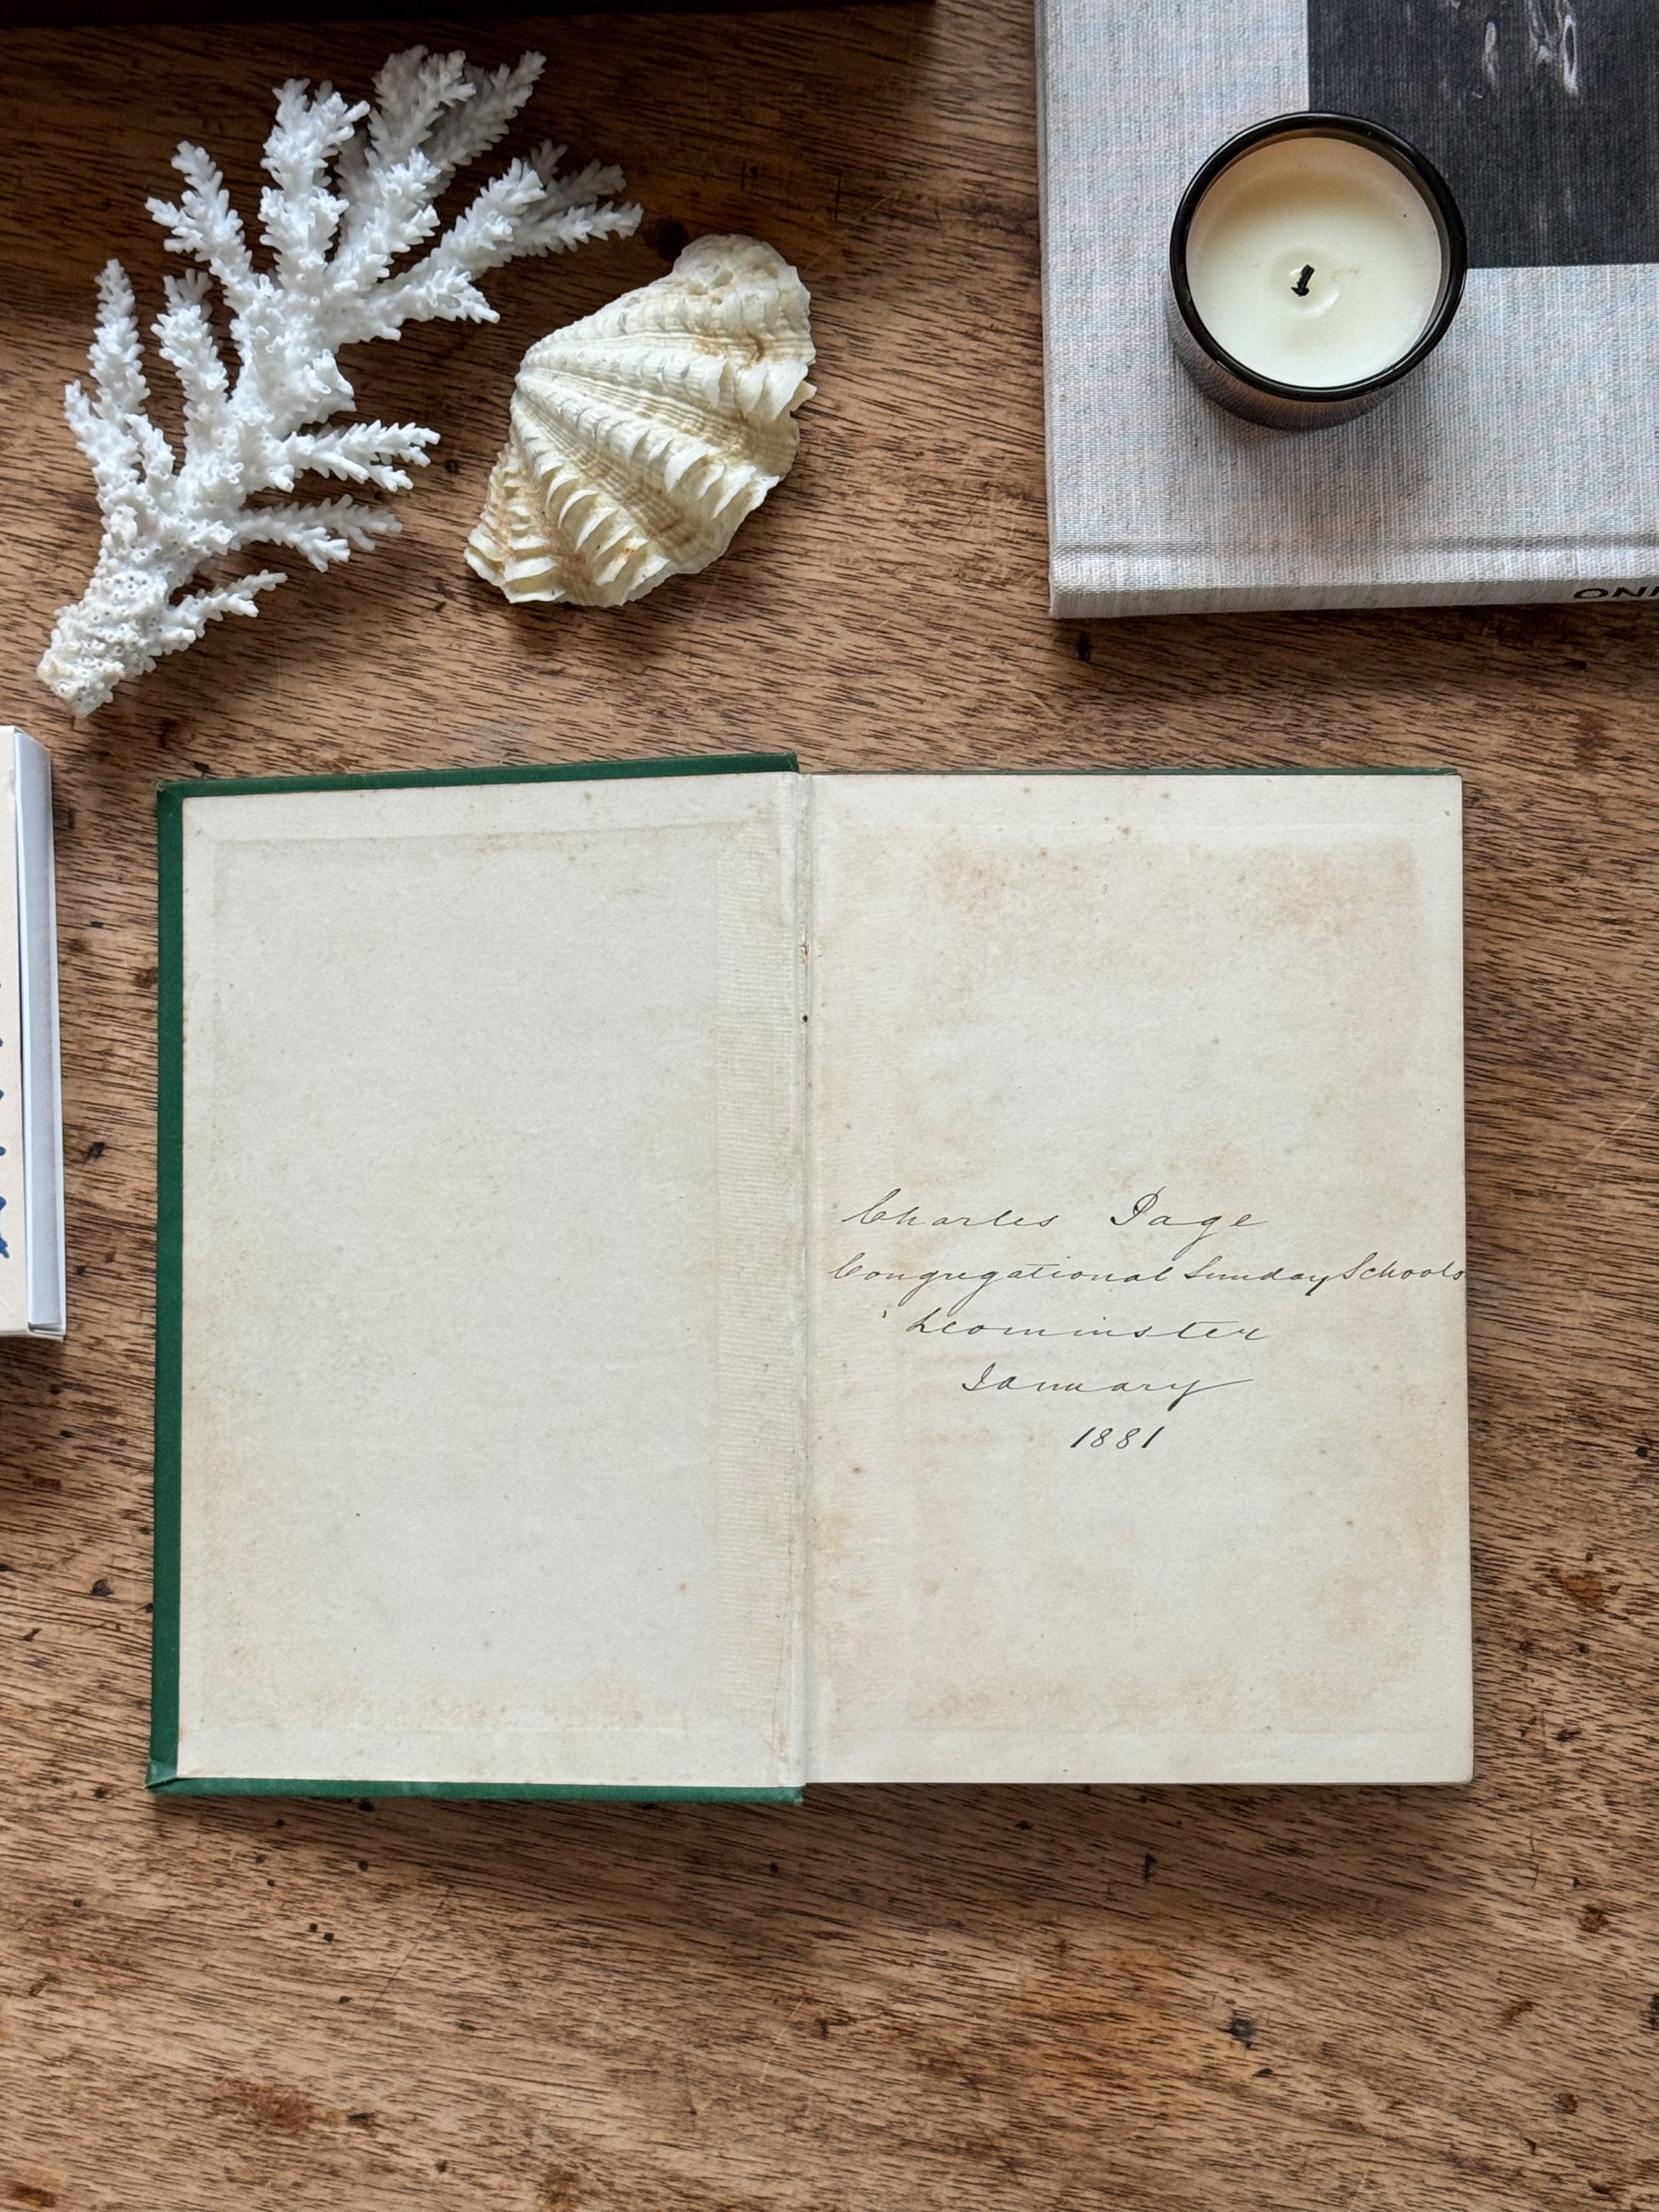 Charles Page
Congregational Sunday Schools
Leominster
January
1881